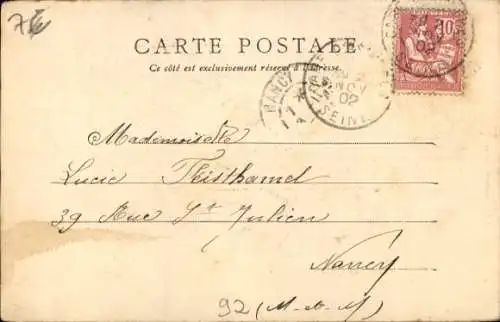 CARTE POSTALE
Ce côté est exclusivement réservé à l'adresse.
10
NANCY
02
SEINE
Mademoiselle
Lucie Theisthamel
39 Rue St Julien
Nancy
92 (M-et-M)